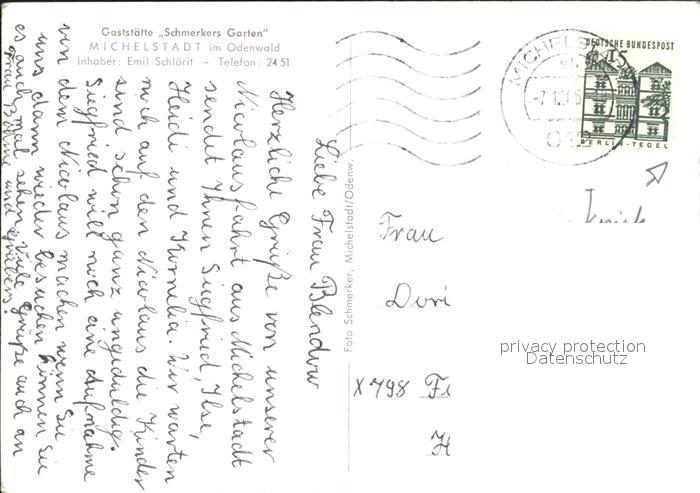 Gaststätte „Schmerkers Garten"
MICHELSTADT im Odenwald
Inhaber: Emil Schlörit – Telefon: 24 51
Liebe Frau
Herzliche Grüße von unserer
Nicolausfahrt aus Michelstadt
sendet Ihnen Siegfried, Ilse,
Heidi und Kornelia. Wir warten
mich auf den Nicolaus die Kinder
sind schon ganz ungeduldig.
Siegfried will noch eine Aufnahme
von dem Nicolaus machen wenn Sie
uns dann wieder besuchen können Sie
es auch mal sehen. Viele Grüße auch an
Frau Böhme und
Foto Schmerker, Michelstadt/Odenw.
DEUTSCHE BUNDESPOST
15
BERLIN-TEGEL
Knick
Frau
Dori
X 798 Fi
H
privacy protection
Datenschutz